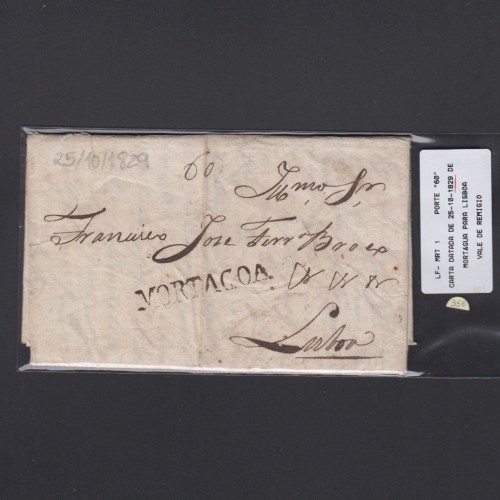 25/10/1829
60
Illmo. Sr.
Francisco Jose Ferr
MORTAGOA
Lisboa
LF- MRT 1 PORTE "60"
CARTA DATADA DE 25-10-1829 DE
MORTAGUA PARA LISBOA
VALE DE REMIGIO